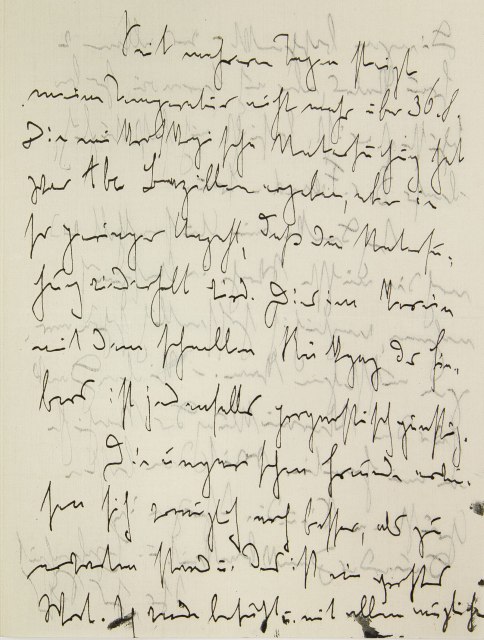 Seit mehreren Tagen steigt
meine Temperatur nicht mehr über 36.8.
Die mikroskopische Untersuchung hat
zwar Tbc Bazillen ergeben, aber in
so geringer Anzahl, daß die Untersu-
chung wiederholt wird. Dies im Verein
mit dem schnellen Rückgang des Fie-
bers ist jedenfalls prognostisch günstig.
Die ungarischen Freunde
sich womöglich noch besser, als zu
Stand u. das ist ein großes
Wort. Ich werde besucht u. mit allem mögliche